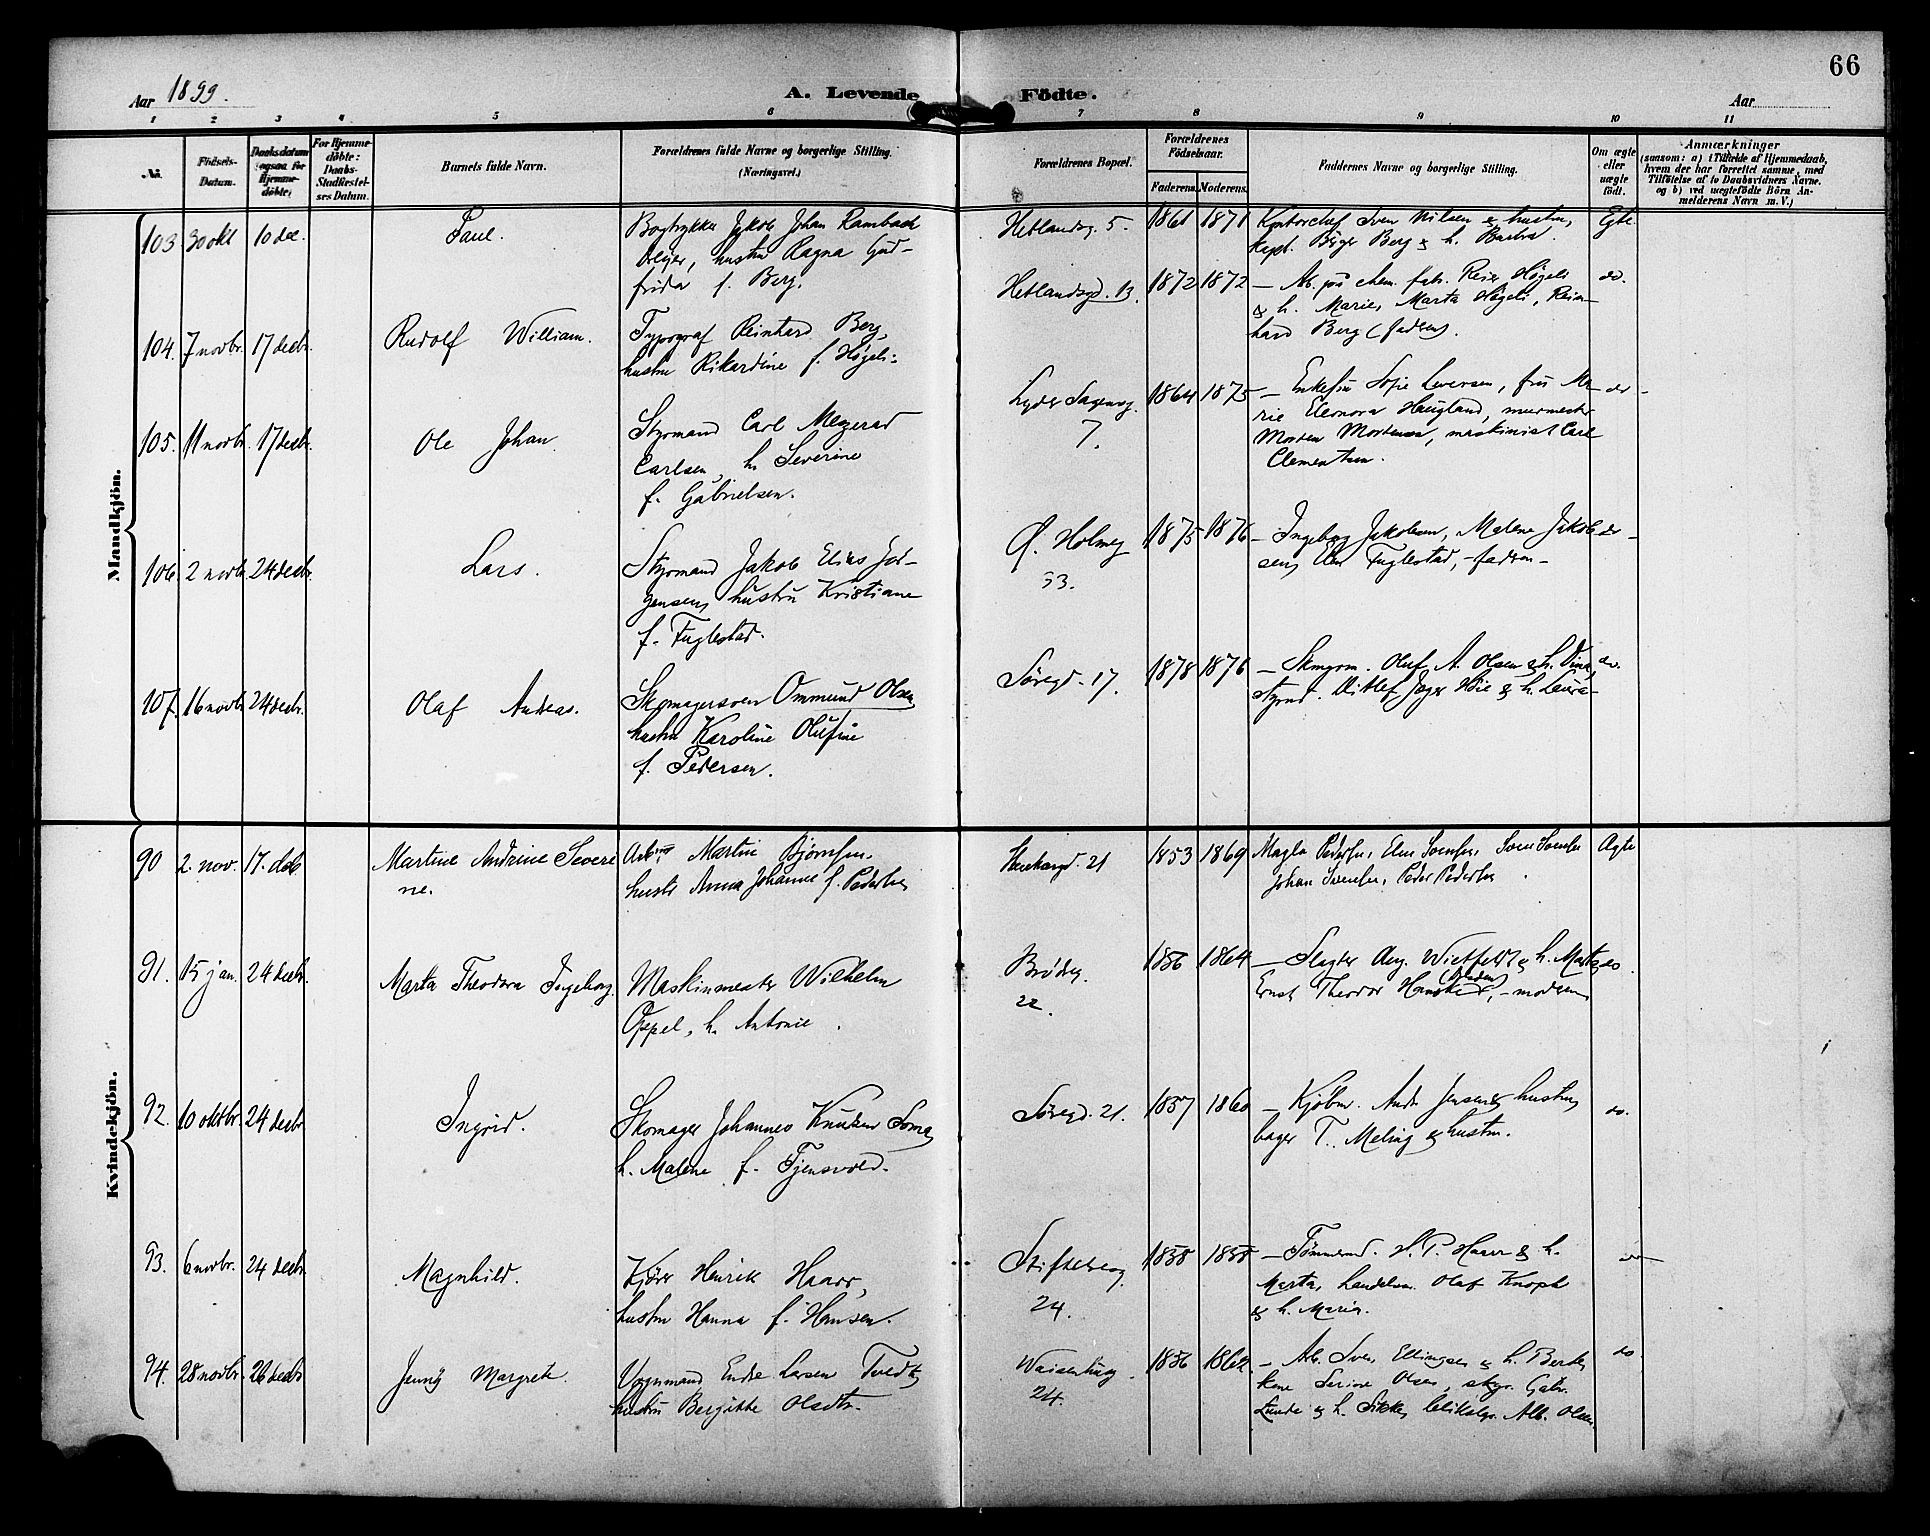 66
Aar 1899.
A. Levende Födte.
Aar
1 2 3 4 5 6 7 8 9 10 11
No.
Födsels-
Datum.
Daabsdatum
(ogsaa for
Hjemme-
döbte)
For Hjemme-
döbte:
Daabs-
Stadfæstel-
ses Datum.
Barnets fulde Navn.
Forældrenes fulde Navne og borgerlige Stilling.
(Næringsvei.)
Forældrenes Bopæl.
Forældrenes
Födselsaar.
Faderens. Moderens.
Faddernes Navne og borgerlige Stilling.
Om ægte
eller
uægte
födt.
Anmærkninger
(saasom: a) i Tilfælde af Hjemmedaab,
hvem der har forrettet samme, med
Tilföielse af to Daabsvidners Navne,
og b) ved uægtefödte Börn An-
melderens Navn m. V.)
Mandkjön.
103 30 okt 10 dec.
Paul.
Bogtrykker Jakob Johan Rambech
Dreyer, hustru Ragna Gud-
frida f. Berg.
Hetlandsg. 5.
1861 1871
Kontorchef Sven Nilsen & hustru,
kapt. Birger Berg & h. Barbra.
Egte
104. 7 novbr. 17 decbr.
Rudolf William.
Typograf Reinhard Berg,
hustru Rikardine f. Høgeli.
Hetlandsgd. 13.
1872 1872
— Arb. på chem. fabr. Reier Høgeli
& h. Marie, Marta Høgeli, Rein-
hard Berg (faderen).
do.
105. 11 novbr. 17 decbr.
Ole Johan
Styrmand Carl
Carlsen, h. Severine
f. Gabrielsen.
Lyder Sagensg.
7.
1864 1875
— Enkefru Sofie Iversen, frk Ma-
rie Eleonora Haugland, murmester
Morten Mortensen, maskinist Carl
Clementsen.
do
106. 2 novbr. 24 decbr.
Lars.
Styrmand Jakob Elias Jør-
gensen, hustru Kristiane
f. Fuglestad.
Ø. Holmeg
33.
1875 1876
— Ingeborg Jakobsen, Malene Jakob-
sen, Elen Fuglestad, - faderen -
do
107. 16 novbr 24 decbr.
Olaf Andreas.
Skomagersven Ommund Olsen
hustru Karoline Olufine
f. Pedersen.
Søregd. 17.
1878 1876
— Skmgrm. Oluf A. Olsen & h. Dina,
styrmd. Ditlef Jæger Høie & h. Laura -
do.
Kvindekjön.
90 2. nov. 17. deb.
Martine Andrine Severi
ne.
Arb. Martin Bjørnsen,
hustr Anna Johanne f. Pedersen
21
1853 1869
Magla Pedersen, Elen Svensen, Sven Svensen
Johan Svensen, Peder Pedersen
Ægte
91. 15 jan. 24 decbr.
Marta Theodora Ingeborg.
Maskinmester Wilhelm
Oppel, h. Antonie.
Brødeg.
22.
1856 1864
— Slagter Aug. Wietfeldt & h. Marta,
Ernst Theodor (faderen), - moderen
do.
92. 10 oktbr. 24 decbr.
Ingrid.
Skomager Johannes Knudsen Soma,
h. Malene f. Tjensvold.
Søregd. 21.
1857 1860
— Kjøbm. Andr. Jensen & hustru,
bager T. Meling & hustru.
do.
93. 6 novbr. 24 decbr.
Magnhild.
Kjører Henrik Haarr,
hustru Hanna f. Hansen.
24.
1858 1858
— Tømmermd. H. P. Haarr & h.
Marta, handelsm. Olaf Knoph
& h. Maria.
94. 28 novbr. 26 decbr
Jenny Margrete.
Vognmand Endre Larsen Tvedt,
hustru Bergitte Olsdtr.
Waisenhusg.
24.
1856 1862.
— Arb. Sven Ellingsen & h. Berta,
Serine Olsen, skpr. Gabr.
Lunde & h. blikslgr. Alb. Olsen
do